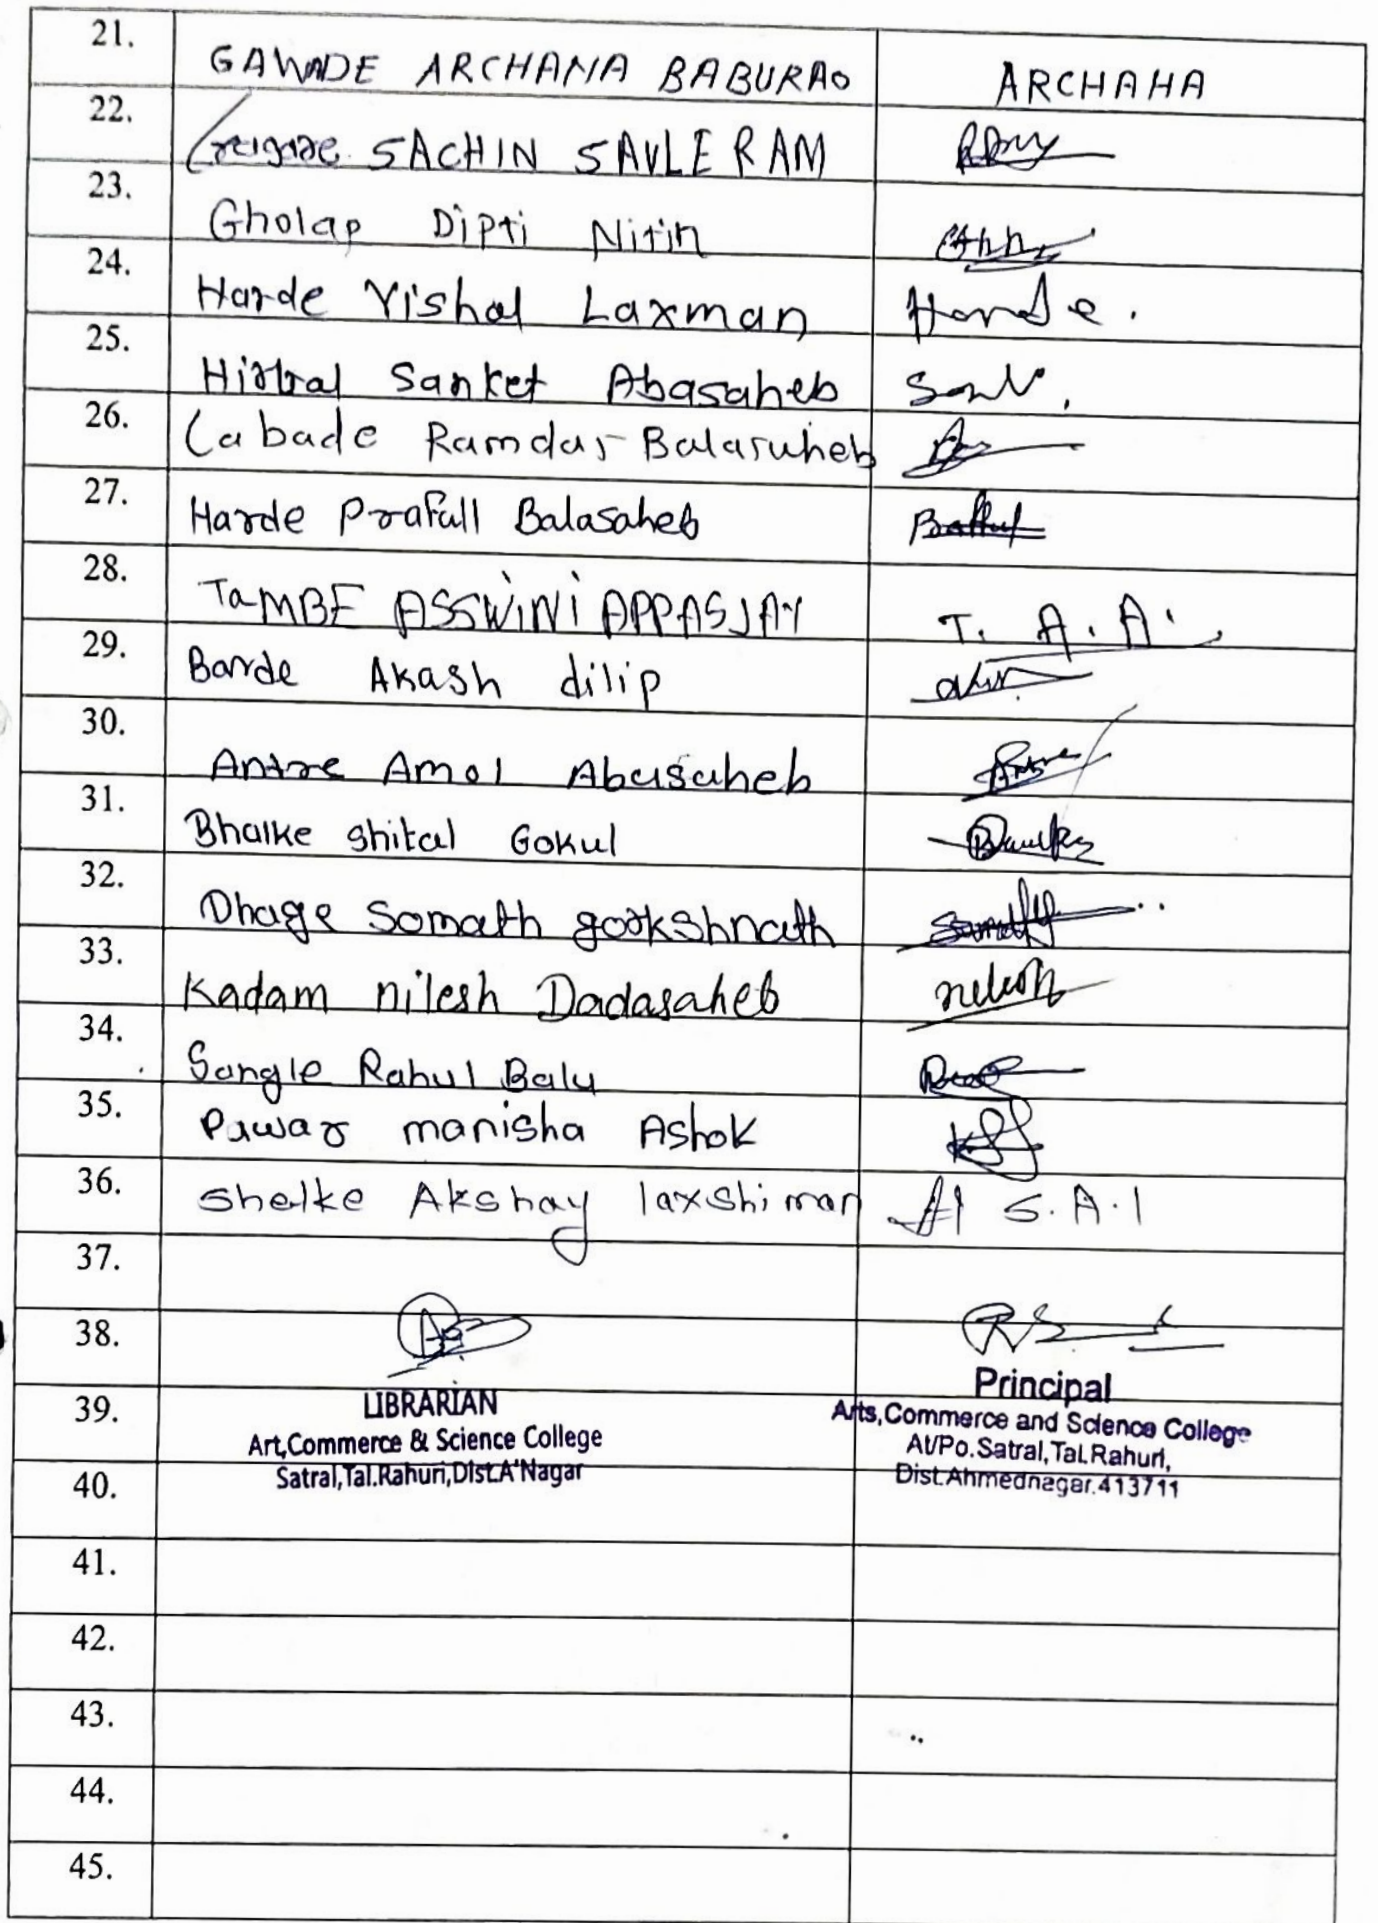 21. GAWADE ARCHANA BABURAO ARCHAHA
22. SACHIN SAVLERAM
23. Gholap Dipti Nitin
24. Harde Vishal Laxman Harde.
25. Sanket Abasaheb
26. Labade Ramdas Balasaheb
27. Harde Prafull Balasaheb
28. TaMBE ASSWiNi T. A. A.
29. Barde Akash dilip
30. Antre Amol Abasaheb
31. Bhalke Shital Gokul
32. Dhage Somath gorkshnath
33. Kadam nilesh Dadasaheb
34. Sangle Rahul Balu
35. Pawar manisha Ashok
36. Shelke Akshay laxshiman S.A.l
37.
38.
39. LIBRARIAN
Art,Commerce & Science College
Satral,Tal.Rahuri,Dist.A'Nagar
Principal
Arts,Commerce and Science College
At/Po.Satral,Tal.Rahuri,
Dist.Ahmednagar.413711
40.
41.
42.
43.
44.
45.